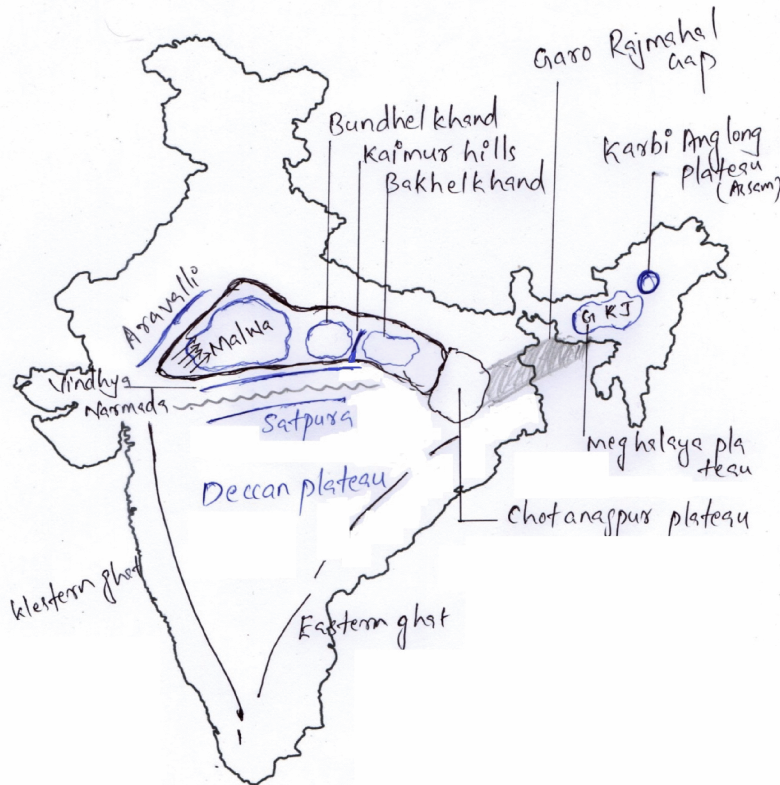 Garo Rajmahal
Gap
Bundhelkhand
Kaimur hills
Bakhelkhand
Karbi Anglong
plateau
(Assam)
Aravalli
Malwa
G K J
Vindhya
Narmada
Satpura
Meghalaya pla
teau
Deccan plateau
Chotanagpur plateau
Western ghat
Eastern ghat